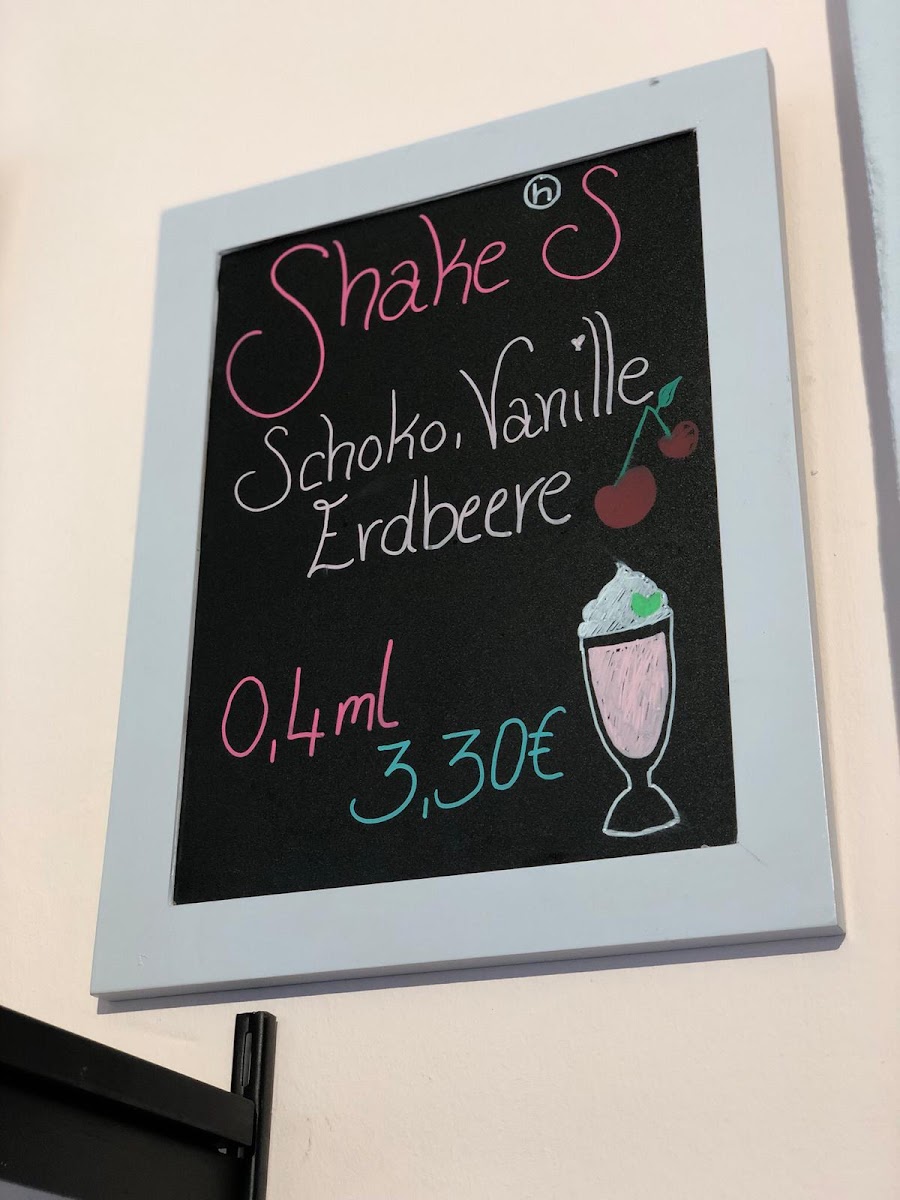 Shake'S
h
Schoko, Vanille
Erdbeere
0,4ml
3,30€